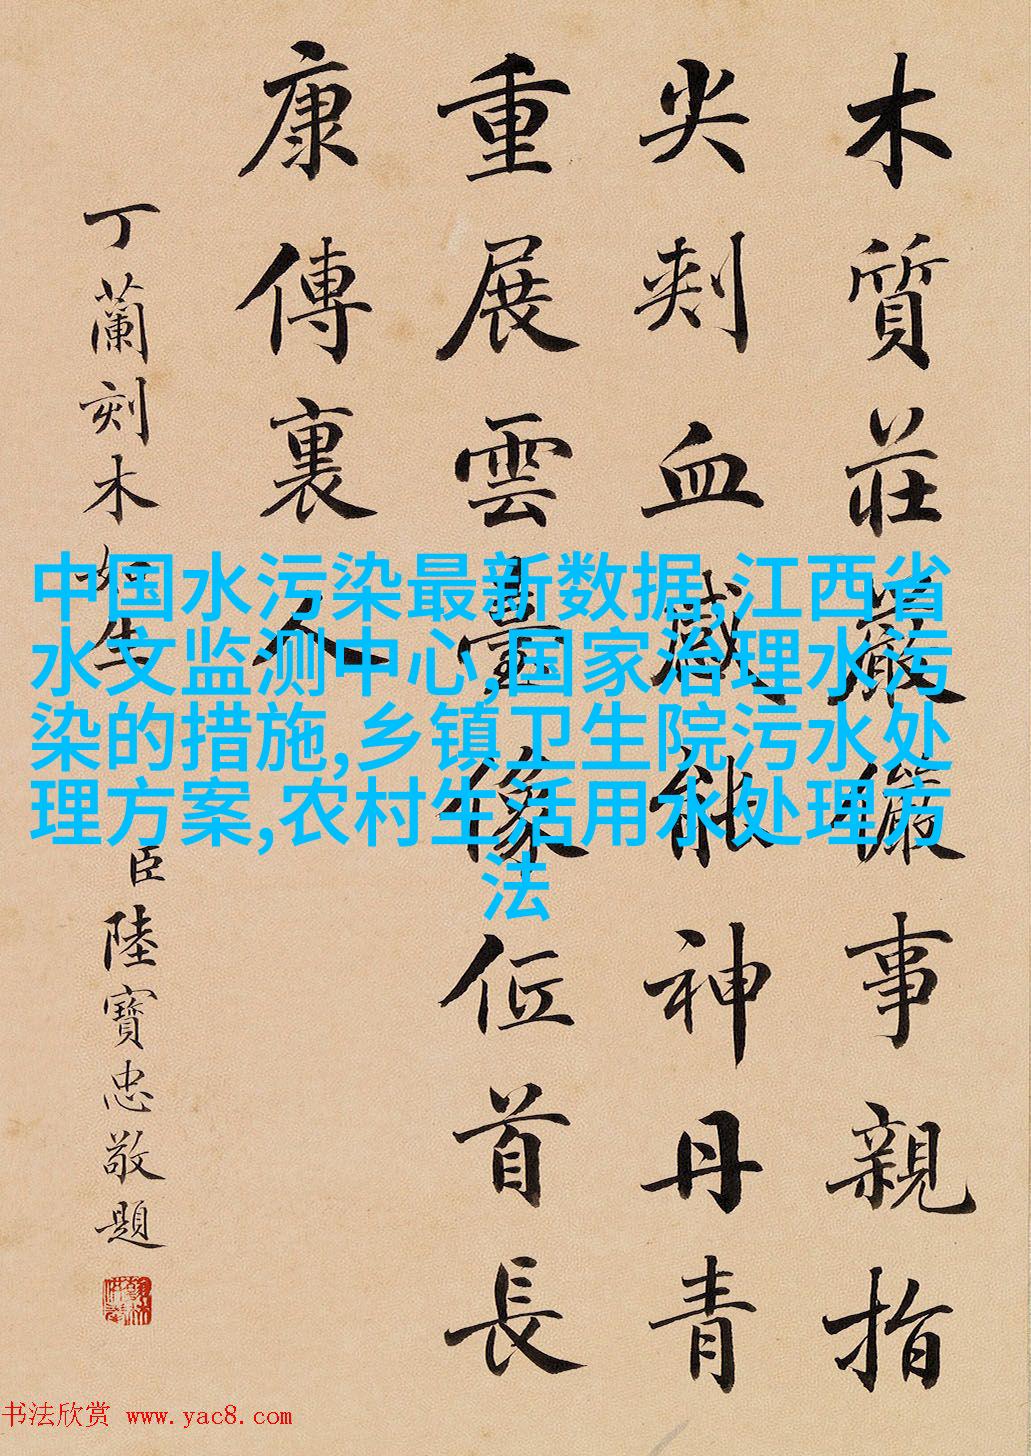 木質莊嚴儼事親指
尖刺血感能神丹青
重展雲臺像低首長
康傳裏人
丁蘭刻木如生
臣陸寶忠敬題
中国水污染最新数据,江西省
水文监测中心,国家治理水污
染的措施,乡镇卫生院污水处
理方案,农村生活用水处理方
法
书法欣赏 www.yac8.com